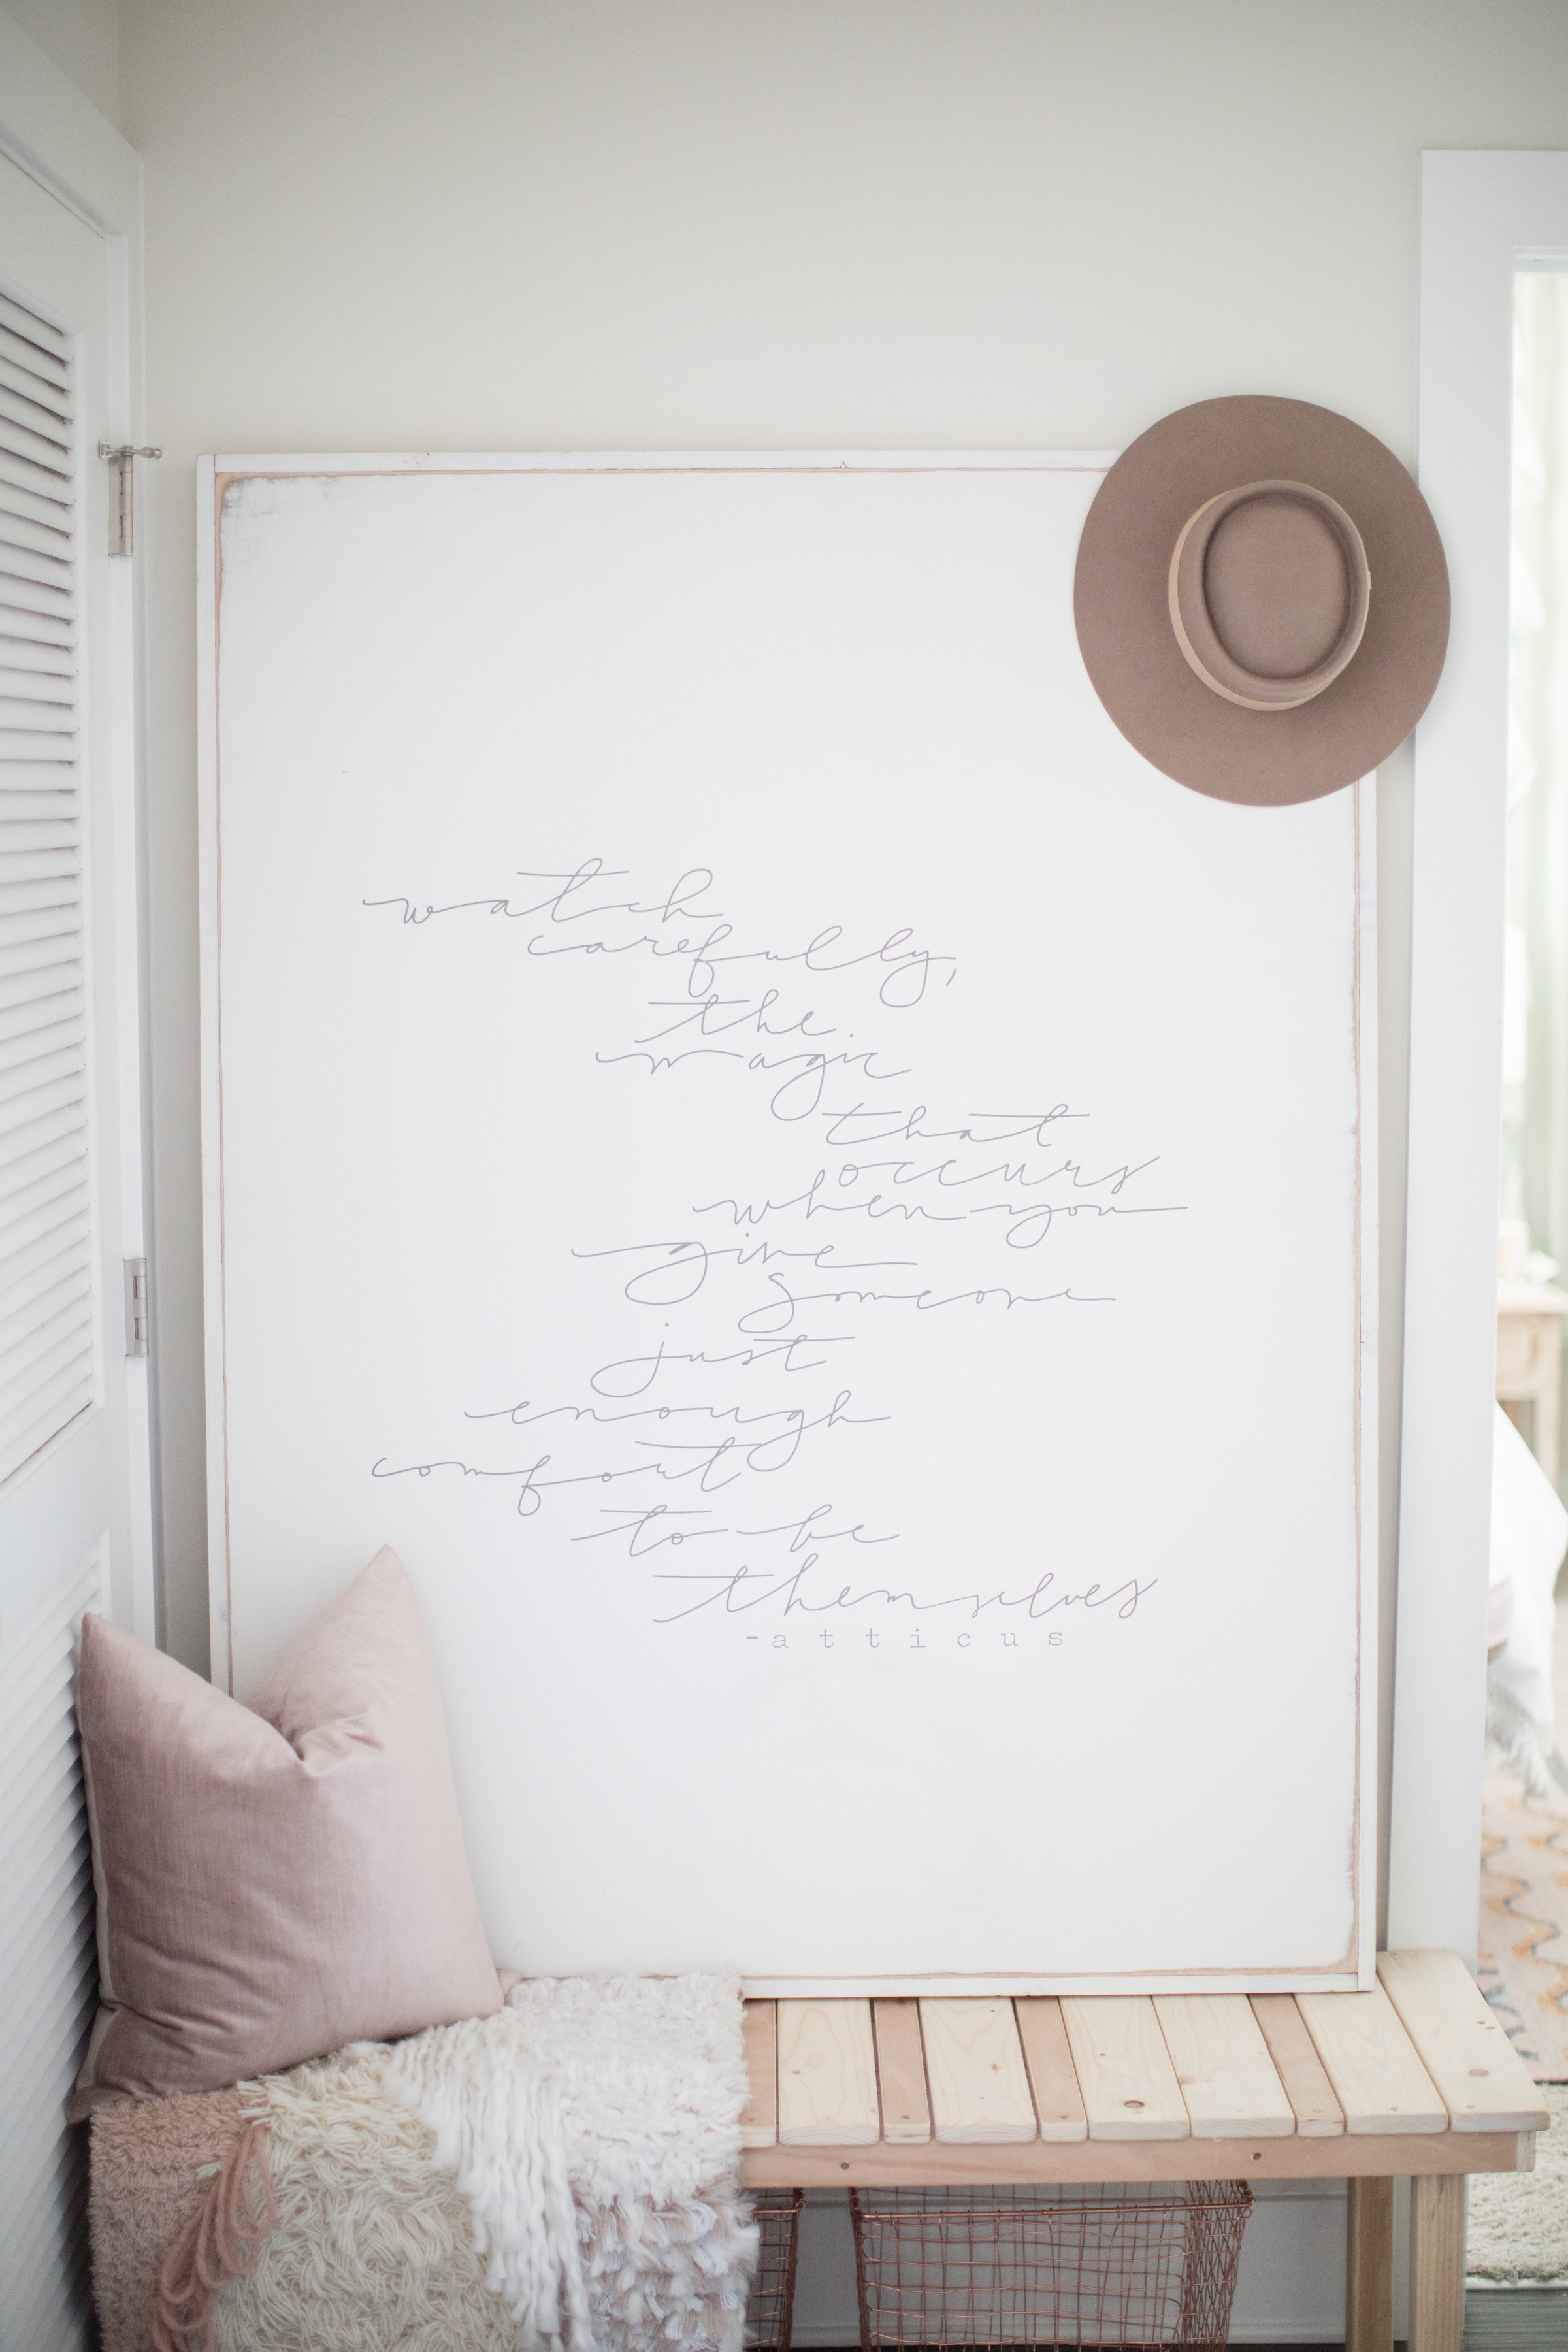 watch
carefully,
the
magic
that
occurs
when you
give
someone
just
enough
comfort
to be
themselves
-atticus